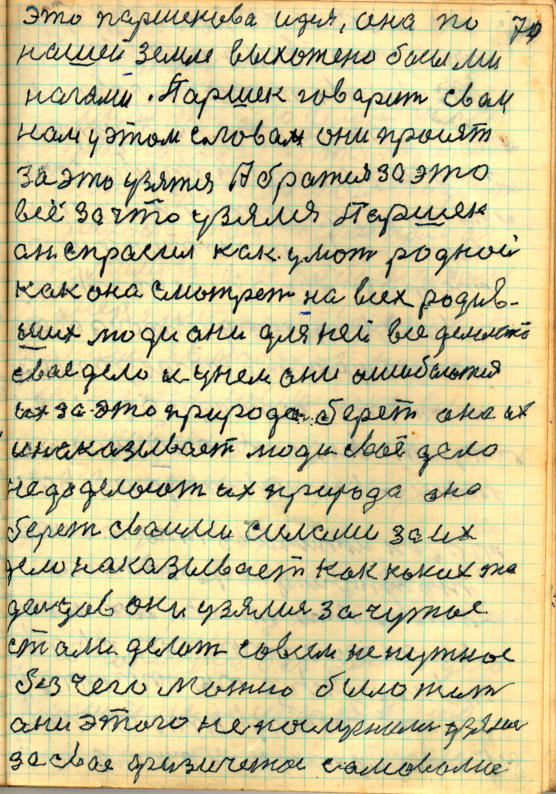 это паршекова идея, она по 70
нашей земле выхожено босыми
ногами. Паршек говарит свои
нам у этом словам они проият
за это узятся А братия за это
всё за что узялся Паршек
ан спрасил как у мат родной
как она смотрет на всех родив-
ших люди ани для ней все делают
свае дело и у нем они ошибаются
их за это природа берет она их
и наказывает люди своё дело
не доделают их природа она
берет сваими силами за их
дело наказывает как каких то
дельцов они узялися за чужое
стали делат совсем не нужное
без чего можно было жит
ани этого не послушали узялись
за свае физическае самоволие